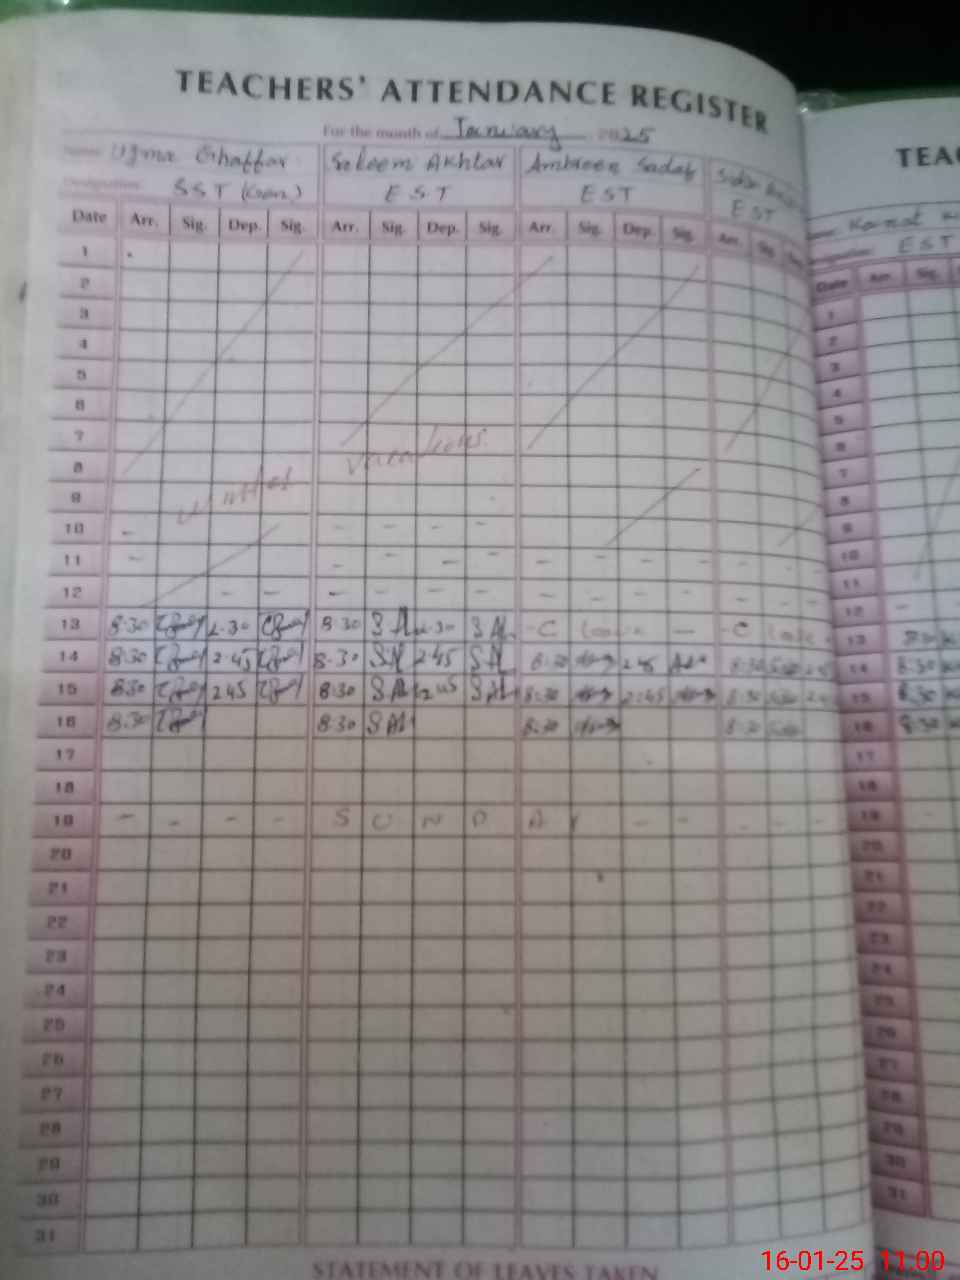 TEACHERS' ATTENDANCE REGISTER
For the month of January 2025
Name Uzma Ghaffar Saleem Akhtar Ambreen Sadaf
Designation SST (Com.) EST EST EST
Date Arr. Sig. Dep. Sig. Arr. Sig. Dep. Sig. Arr. Sig. Dep. Sig. Arr. Sig.
1
2
3
4
5
6
7
8
9
winter vacations.
10 - - - - -
11 - - - - - - - - -
12 - - - - - - - -
13 8:30 2.30 8:30 SA 2.30 SA - C Leave - - C Leave -
14 8:30 2:45 8:30 SA 2:45 SA 8:30 2:45 8:30
15 8:30 2:45 8:30 SA 2:45 SA 8:30 2:45 8:30
16 8:30 8:30 SA 8:30 8:30
17
18
19 - - - - S U N D A Y - - - -
20
21
22
23
24
25
26
27
28
29
30
31
STATEMENT OF LEAVES TAKEN
TEAC
EST
Date Arr. Sig.
1
2
3
4
5
6
7
8
9
10
11
12 -
13
14 8:30
15 8:30
16 8:30
17
18
19 -
20
21
22
23
24
25
26
27
28
29
30
31
16-01-25 11:00